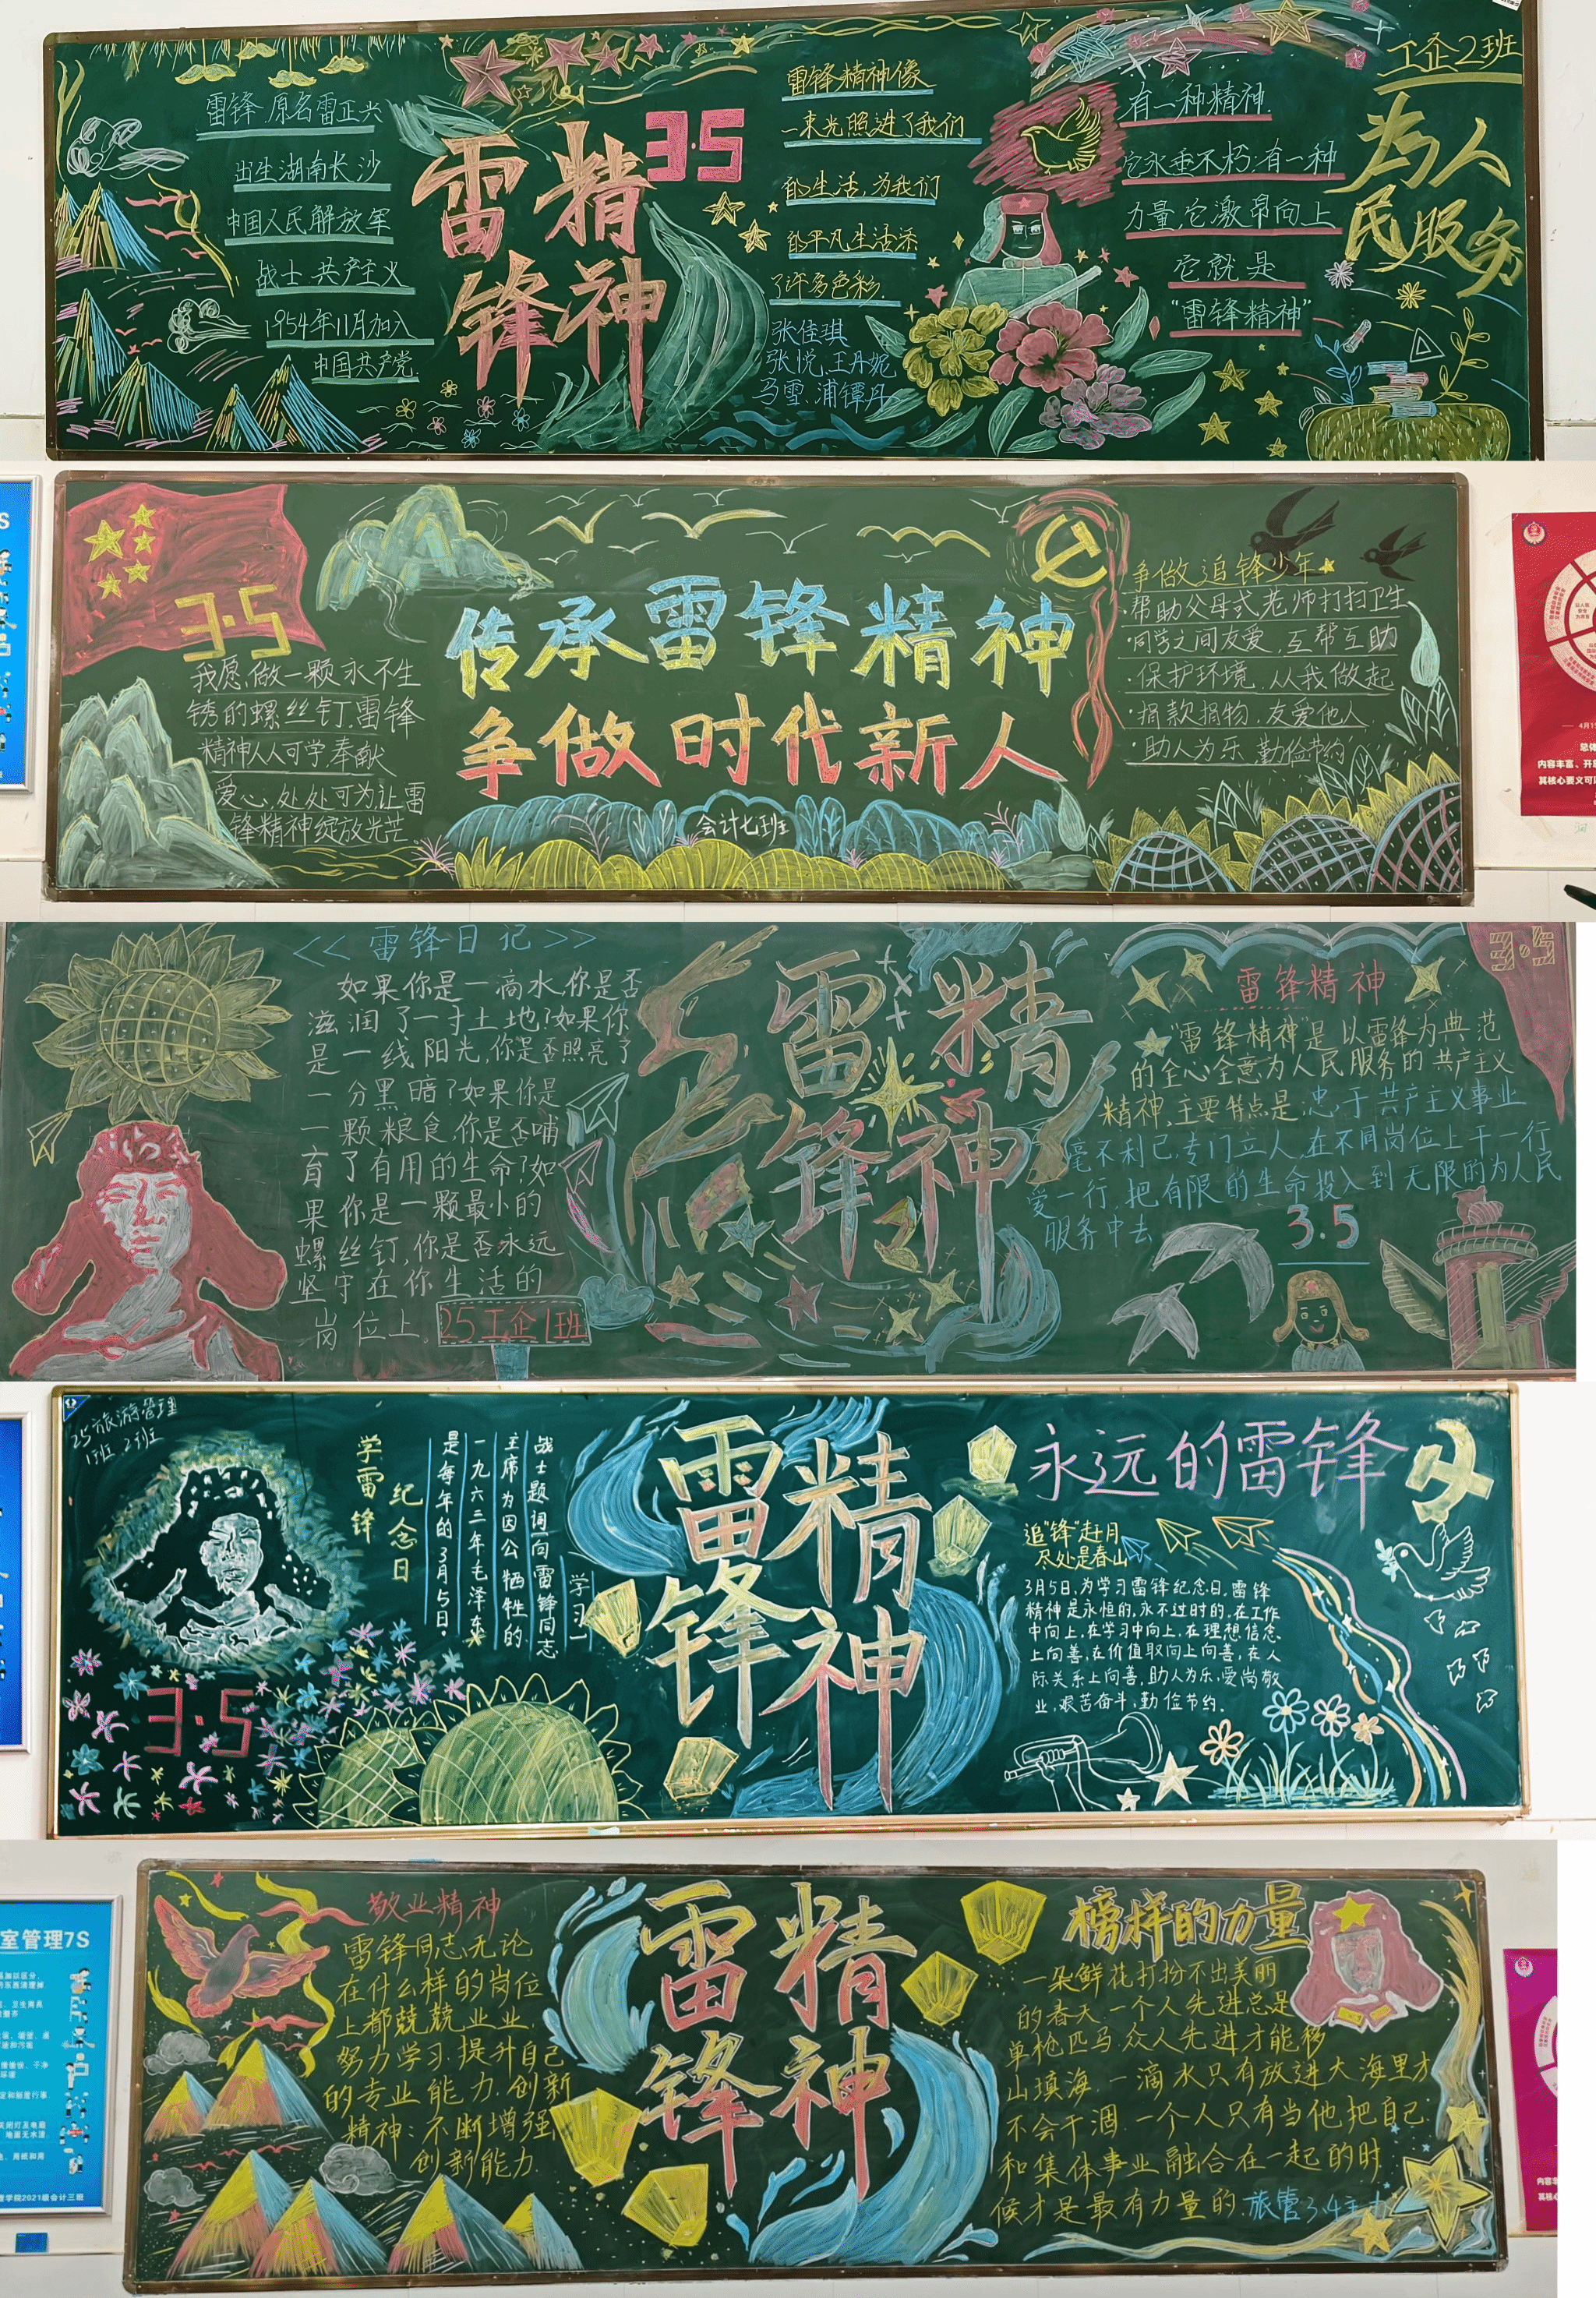 雷锋.原名雷正兴
出生湖南长沙
中国人民解放军
战士.共产主义
1954年11月加入
中国共产党.
雷锋
精神
3·5
雷锋精神像
一束光照进了我们
的生活,为我们
的平凡生活添
了许多色彩.
张佳琪
张悦.王丹妮
马雪.浦镡丹
有一种精神.
它永垂不朽;有一种
力量,它激昂向上
它就是
"雷锋精神"
工企2班
为人
民服务
3·5
我愿做一颗永不生
锈的螺丝钉.雷锋
精神人人可学.奉献
爱心.处处可为让雷
锋精神绽放光芒.
传承雷锋精神
争做时代新人
会计七班
争做追锋少年
·帮助父母或老师打扫卫生
·同学之间友爱,互帮互助
·保护环境.从我做起
·捐款捐物.友爱他人.
·助人为乐 勤俭节约
<<雷锋日记>>
如果你是一滴水,你是否
滋润了一寸土地?如果你
是一线阳光,你是否照亮了
一分黑暗?如果你是
一颗粮食,你是否哺
育了有用的生命?如
果你是一颗最小的
螺丝钉,你是否永远
坚守在你生活的
岗位上.
25工企1班
雷锋
精神
3·5
雷锋精神
"雷锋精神"是以雷锋为典范
的全心全意为人民服务的共产主义
精神,主要特点是:忠于共产主义事业
毫不利己,专门立人,在不同岗位上干一行
爱一行,把有限的生命投入到无限的为人民
服务中去
3.5
25旅游管理
1班 2班
学雷锋
纪念日
是每年的3月5日.
一九六三年毛泽东
主席为因公牺牲的
战士题词「向雷锋同志
学习」
3·5
雷锋
精神
永远的雷锋
追"锋"赶月
尽处是春山
3月5日,为学习雷锋纪念日,雷锋
精神是永恒的,永不过时的.在工作
中向上,在学习中向上,在理想信念
上向善,在价值取向上向善,在人
际关系上向善,助人为乐,爱岗敬
业,艰苦奋斗,勤俭节约.
室管理7S
理学院2021级会计三班
敬业精神
雷锋同志无论
在什么样的岗位
上都兢兢业业.
努力学习.提升自己
的专业能力.创新
精神:不断增强
创新能力.
雷锋
精神
榜样的力量
一朵鲜花打扮不出美丽
的春天.一个人先进总是
单枪匹马.众人先进才能移
山填海.一滴水只有放进大海里才
不会干涸.一个人只有当他把自己
和集体事业融合在一起的时
候才是最有力量的.旅管3.4